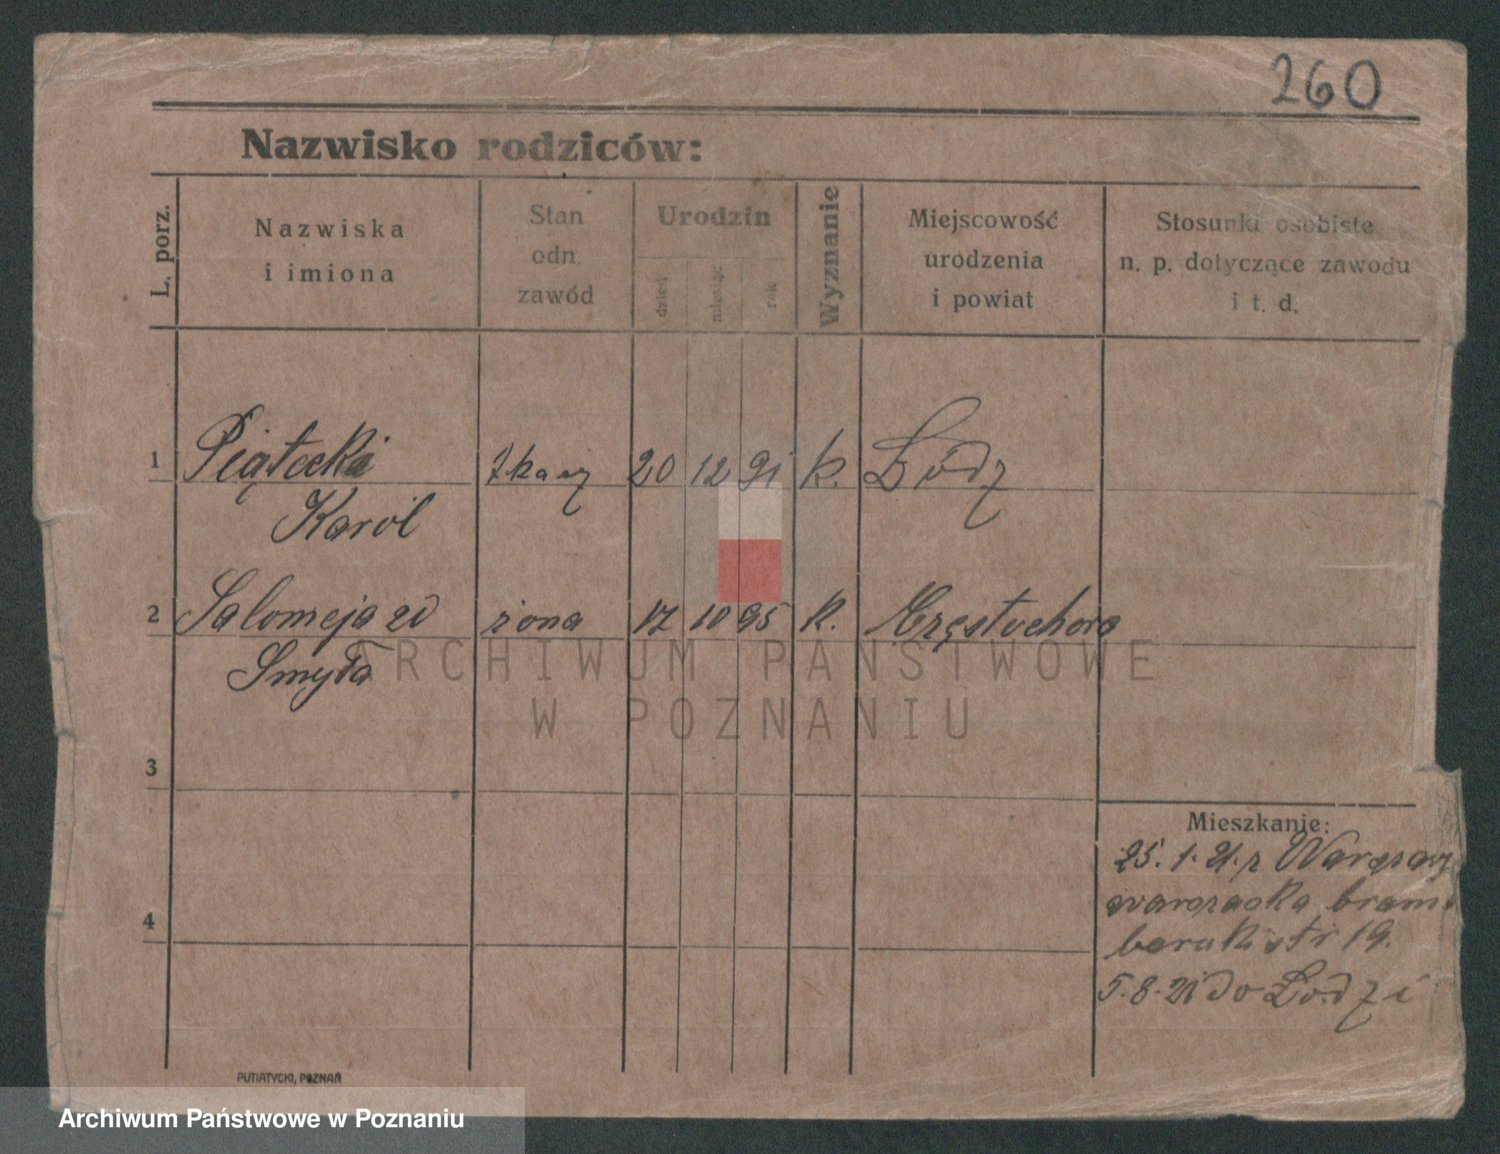 260
Nazwisko rodziców:
L. porz.
Nazwiska
i imiona
Stan
odn.
zawód
Urodzin
dzień
miesiąc
rok
Wyznanie
Miejscowość
urodzenia
i powiat
Stosunki osobiste
n. p. dotyczące zawodu
i t. d.
1 Piątecki tkacz 20 12 91 k. Łódz
Karol
2 Salomeja zd żona 17 10 95 k. Częstochowa
Smyła
ARCHIWUM PAŃSTWOWE
W POZNANIU
3
Mieszkanie:
25. 1. 21. z Warszawy
warszaska bram.
baraki str 19.
4
5. 8. 21 do Łodzi
PUTIATYCKI, POZNAŃ
Archiwum Państwowe w Poznaniu